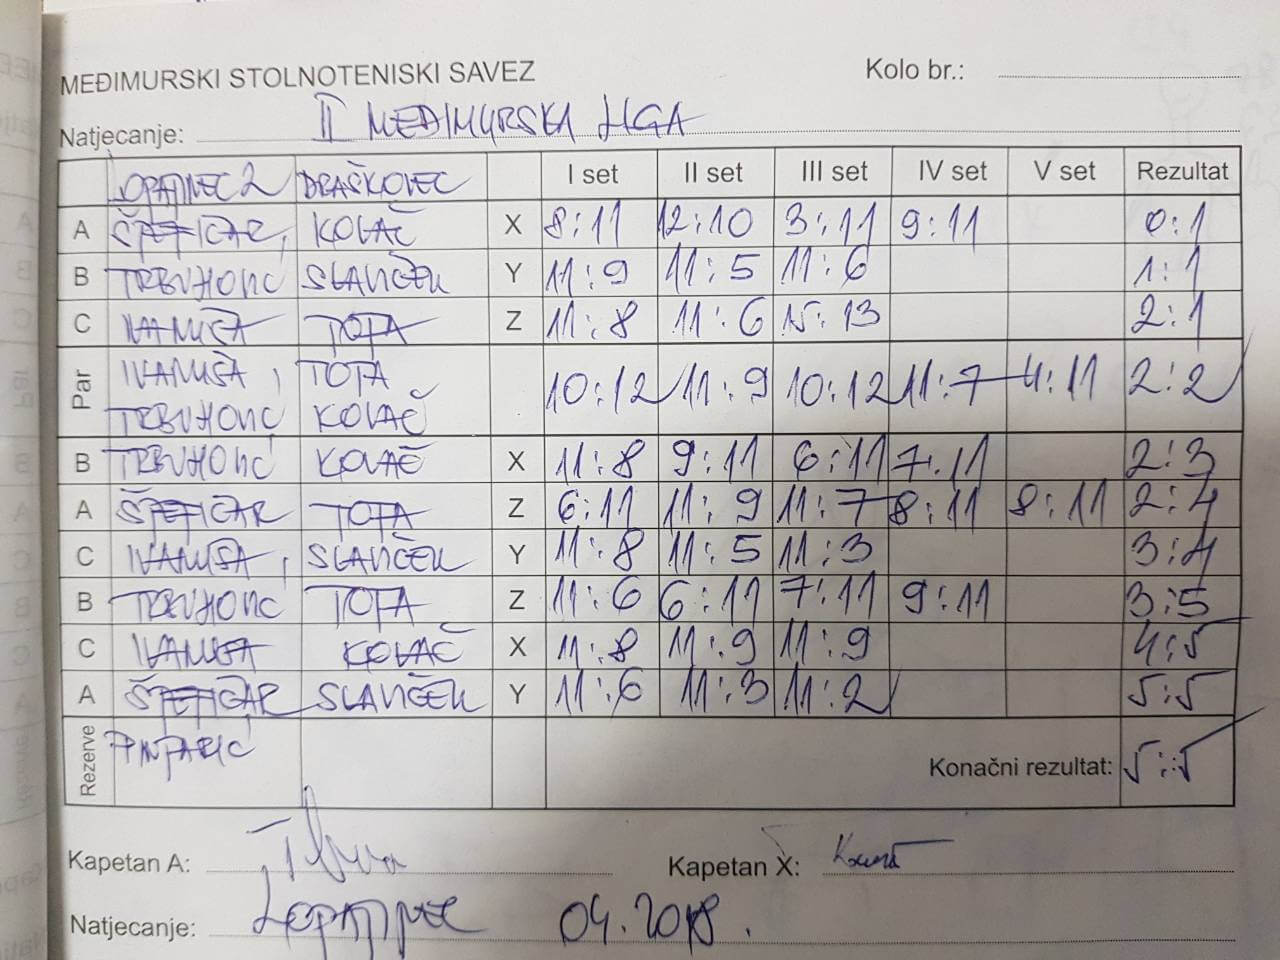 MEĐIMURSKI STOLNOTENISKI SAVEZ Kolo br.:
Natjecanje: II MEĐIMURSKA LIGA
LOPATINEC 2 DRAŠKOVEC I set II set III set IV set V set Rezultat
A ŠPEFIČAR, KOVAČ X 8:11 12:10 3:11 9:11 0:1
B TRBUHOVIĆ SLAVIČEK Y 11:9 11:5 11:6 1:1
C IVANUŠA TOTA Z 11:8 11:6 15:13 2:1
Par IVANUŠA, TOTA
TRBUHOVIĆ KOVAČ 10:12 11:9 10:12 11:7 4:11 2:2
B TRBUHOVIĆ KOVAČ X 11:8 9:11 6:11 7:11 2:3
A ŠPEFIČAR TOTA Z 6:11 11:9 11:7 8:11 8:11 2:4
C IVANUSA, SLAVIČEK Y 11:8 11:5 11:3 3:4
B TRBUHOVIĆ TOTA Z 11:6 6:11 7:11 9:11 3:5
C IVANUŠA KOVAČ X 11:8 11:9 11:9 4:5
A ŠPEFIČAR SLAVIČEK Y 11:6 11:3 11:2 5:5
Rezerve PINTARIĆ Konačni rezultat: 5:5
Kapetan A: Kapetan X:
Natjecanje: LOPATINEC 04.2018.